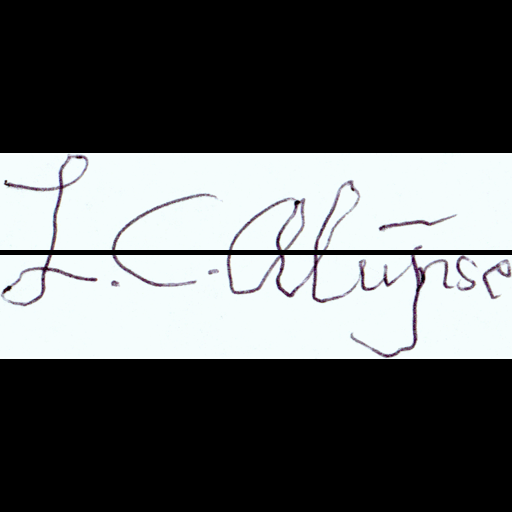 L. C. Alujnse